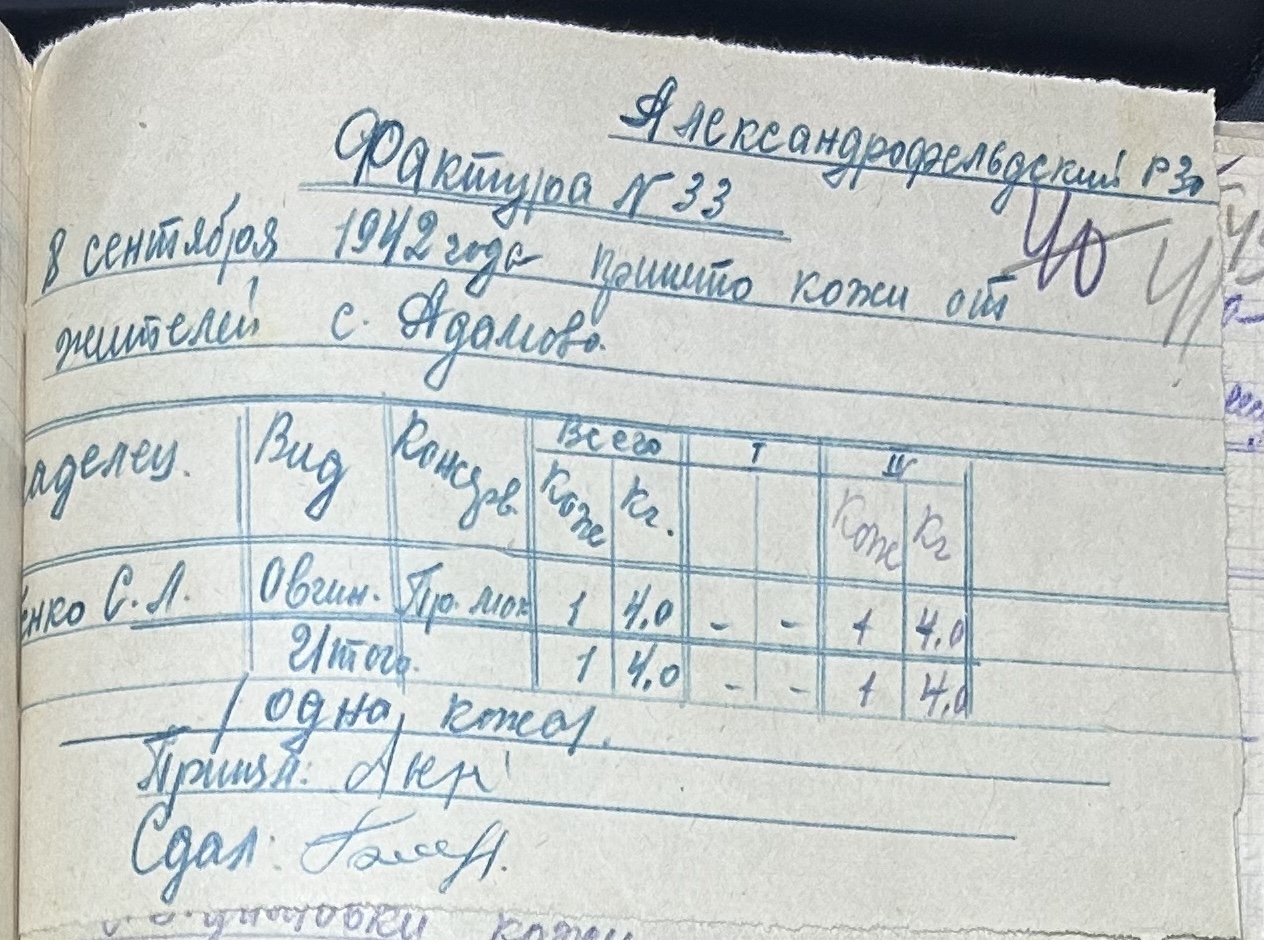 Александрофельдский РЗо
Фактура N 33
40
8 сентября 1942 года принято кожи от
жителей с. Адамово.
аделец. Вид Консерв. Всего I IV
Кож Кг. Кож Кг
енко С.Л. Овчин. Пр. мок 1 4.0 - - 1 4.0
Итого. 1 4.0 - - 1 4.0
/одна кожа/.
Принял:
Сдал:
кожи